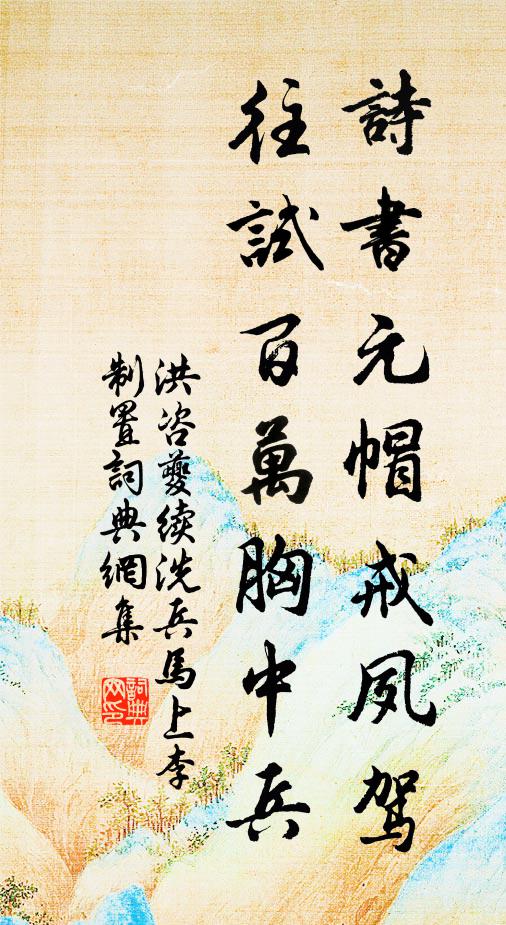 詩書元帽戒夙駕
往試百萬胸中兵
洪咨夔續洗兵馬上李
制置詞典網集
詞典网印